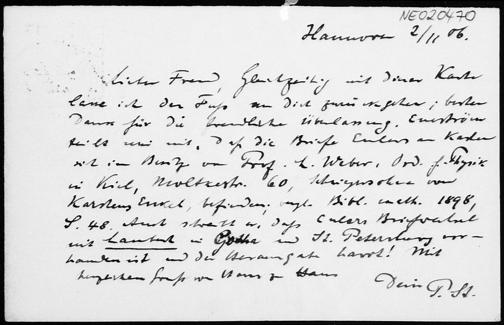 NE020470
Hannover 2/11 06.
Lieber Freund, Gleichzeitig mit dieser Karte
lasse ich den Fuss an Dich zurückgehen; besten
Dank für die freundliche Überlassung. Eneström
teilt mir mit, daß die Briefe Eulers an Karsten
sich im Besitz von Prof. L. Weber, Ord. f. Physik
in Kiel, Moltkestr. 60, Schwiegersohn von
Karstens Enkel, befinden; vgl. Bibl. math. 1898,
S. 48. Auch schreibt er, dass Eulers Briefwechsel
mit Lambert in Gotha und St. Petersburg vor-
handen ist und der Herausgabe harrt! Mit
herzlichem Gruss von Haus zu Haus
Dein P. St.